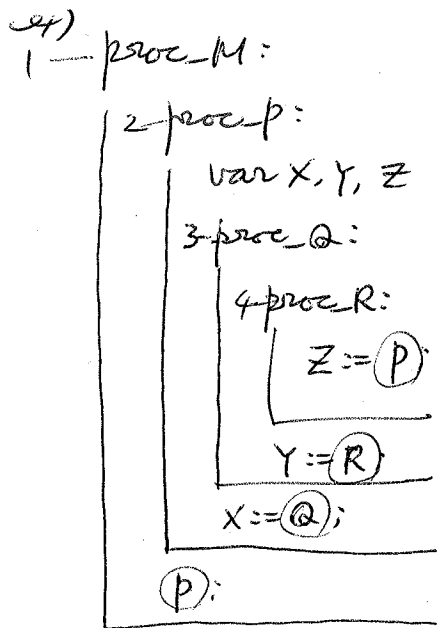 ex)
1 — proc_M:
2-proc_P:
var X, Y, Z
3-proc_Q:
4-proc_R:
Z := P;
Y := R;
X := Q;
P;